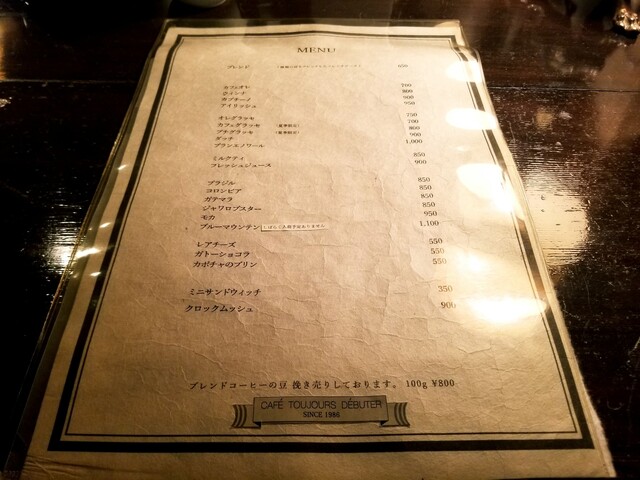 MENU
ブレンド 650
カフェオレ 700
ウィンナ 800
カプチーノ 900
アイリッシュ 950
オレグラッセ 750
カフェグラッセ 700
プチグラッセ 800
ダッチ 900
ブランエノワール 1,000
ミルクティ 850
フレッシュジュース 900
ブラジル 850
コロンビア 850
ガテマラ 850
ジャワロブスター 850
モカ 950
ブルーマウンテン しばらく入荷予定ありません 1,100
レアチーズ 550
ガトーショコラ 550
カボチャのプリン 550
ミニサンドウィッチ 350
クロックムッシュ 900
ブレンドコーヒーの豆 挽き売りしております。 100g ¥800
CAFÉ TOUJOURS DÉBUTER
SINCE 1986